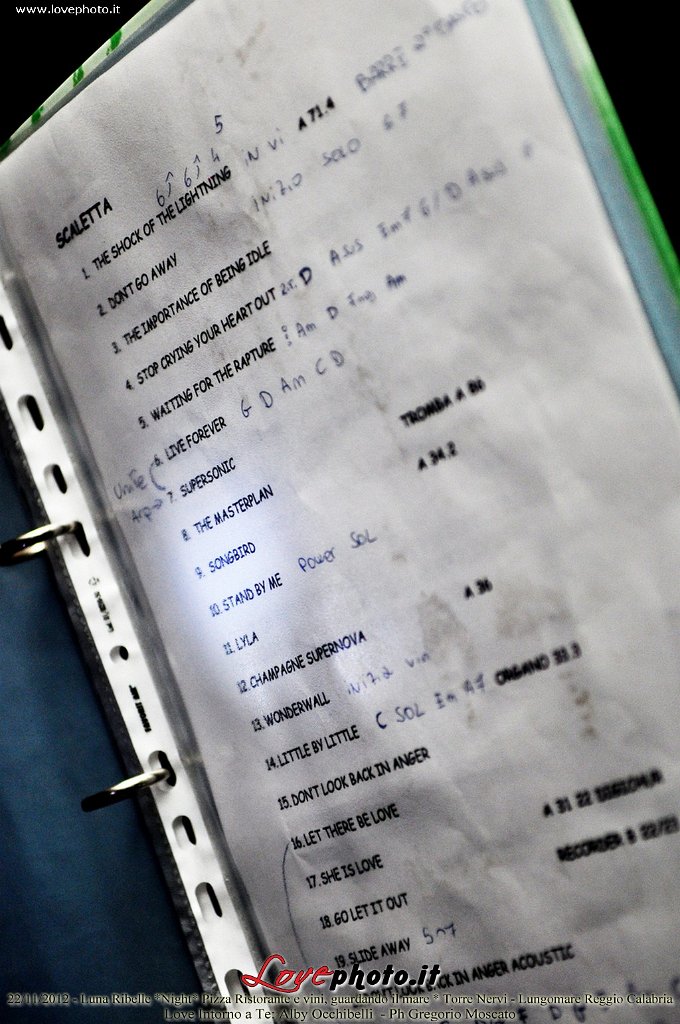 www.lovephoto.it
5
6 6 4 IN VI A 71.4
SCALETTA
1. THE SHOCK OF THE LIGHTNING
INIZIO SOLO 6 F
2. DON'T GO AWAY
3. THE IMPORTANCE OF BEING IDLE
4. STOP CRYING YOUR HEART OUT D
5. WAITING FOR THE RAPTURE Am D Am
6. LIVE FOREVER G D Am C D
7. SUPERSONIC TROMBA A 86
8. THE MASTERPLAN A 34.2
9. SONGBIRD
10. STAND BY ME POWER SOL
11. LYLA
12. CHAMPAGNE SUPERNOVA A 36
13. WONDERWALL
14. LITTLE BY LITTLE C SOL Em A7 ORGANO 33.3
15. DON'T LOOK BACK IN ANGER
16. LET THERE BE LOVE
17. SHE IS LOVE A 31 22
18. GO LET IT OUT RECORDER B 22/23
19. SLIDE AWAY
LOOK BACK IN ANGER ACOUSTIC
Lovephoto.it
22/11/2012 - Luna Ribelle "Night" Pizza Ristorante e vini, guardando il mare * Torre Nervi - Lungomare Reggio Calabria
Love Intorno a Te: Alby Occhibelli - Ph Gregorio Moscato